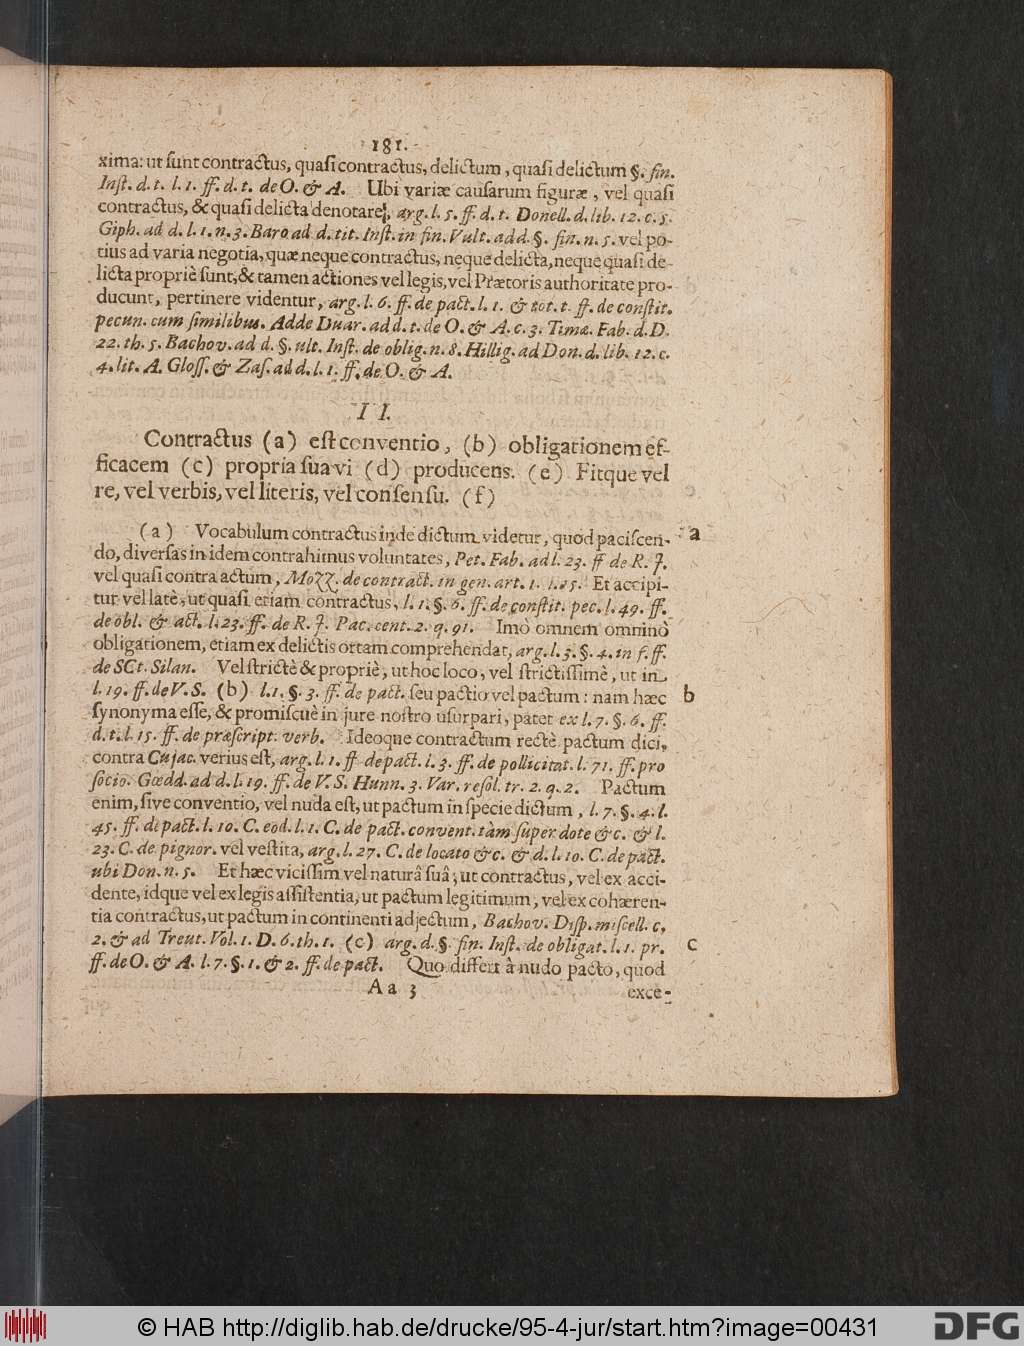 181.
xima: ut sunt contractus, quasi contractus, delictum, quasi delictum §. fin.
Inst. d. t. l. 1. ff. d. t. de O. & A. Ubi variæ causarum figuræ, vel quasi
contractus, & quasi delicta denotare, arg. l. 5. ff. d. t. Donell. d. lib. 12. c. 5.
Giph. ad d. l. 1. n. 3. Baro ad d. tit. Inst. in fin. Vult. ad d. §. fin. n. 5. vel po-
tius ad varia negotia, quæ neque contractus, neque delicta, neque quasi de-
licta propriè sunt, & tamen actiones vel legis, vel Prætoris authoritate pro-
ducunt, pertinere videntur, arg. l. 6. ff. de pact. l. 1. & tot. t. ff. de constit.
pecun. cum similibus. Adde Duar. ad d. t. de O. & A. c. 3. Timæ. Fab. d. D.
22. th. 5. Bachov. ad d. §. ult. Inst. de oblig. n. 8. Hillig. ad Don. d. lib. 12. c.
4. lit. A. Gloss. & Zas. ad d. l. 1. ff. de O. & A.
II.
Contractus (a) est conventio, (b) obligationem ef-
ficacem (c) propria sua vi (d) producens. (e) Fitque vel
re, vel verbis, vel literis, vel consensu. (f)
(a) Vocabulum contractus inde dictum videtur, quod paciscen-
do, diversas in idem contrahimus voluntates, Pet. Fab. ad l. 23. ff de R. J.
vel quasi contra actum, Mozz. de contract. in gen. art. 1. n. 15. Et accipi-
tur vel latè, ut quasi etiam contractus, l. 1. §. 6. ff. de constit. pec. l. 49. ff.
de obl. & act. l. 23. ff. de R. J. Pac. cent. 2. q. 91. Imò omnem omninò
obligationem, etiam ex delictis ortam comprehendat, arg. l. 3. §. 4. in f. ff.
de SCt. Silan. Vel strictè & propriè, ut hoc loco, vel strictissimè, ut in
l. 19. ff. de V. S. (b) l. 1. §. 3. ff. de pact. seu pactio vel pactum: nam hæc
synonyma esse, & promiscuè in jure nostro usurpari, patet ex l. 7. §. 6. ff.
d. t. l. 15. ff. de præscript. verb. Ideoque contractum rectè pactum dici,
contra Cujac. verius est, arg. l. 1. ff de pact. l. 3. ff. de pollicitat. l. 71. ff. pro
socio. Gœdd. ad d. l. 19. ff. de V. S. Hunn. 3. Var. resol. tr. 2. q. 2. Pactum
enim, sive conventio, vel nuda est, ut pactum in specie dictum, l. 7. §. 4. l.
45. ff. de pact. l. 10. C. eod. l. 1. C. de pact. convent. tàm super dote &c. & l.
23. C. de pignor. vel vestita, arg. l. 27. C. de locato &c. & d. l. 10. C. de pact.
ubi Don. n. 5. Et hæc vicissim vel naturâ suâ, ut contractus, vel ex acci-
dente, idque vel ex legis assistentia, ut pactum legitimum, vel ex cohæren-
tia contractus, ut pactum in continenti adjectum, Bachov. Disp. miscell. c.
2. & ad Treut. Vol. 1. D. 6. th. 1. (c) arg. d. §. fin. Inst. de obligat. l. 1. pr.
ff. de O. & A. l. 7. §. 1. & 2. ff. de pact. Quo differt à nudo pacto, quod
Aa 3 exce-
a
b
c
© HAB http://diglib.hab.de/drucke/95-4-jur/start.htm?image=00431
DFG